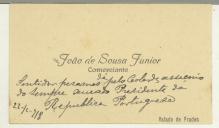 João de Sousa Junior
Comerciante
Sentidos pesames dá pelo assassinio
do sempre Presidente da
Republica Portuguesa
22-12-918
Rabade de Frades